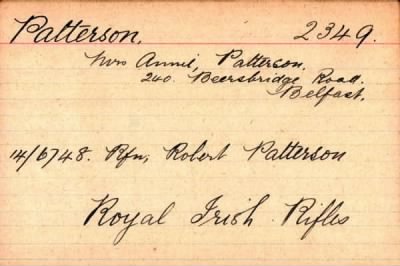 Patterson. 2349.
Mrs Annie, Patterson.
240. Beersbridge Road.
Belfast.
14/6748. Rfn, Robert Patterson
Royal Irish Rifles